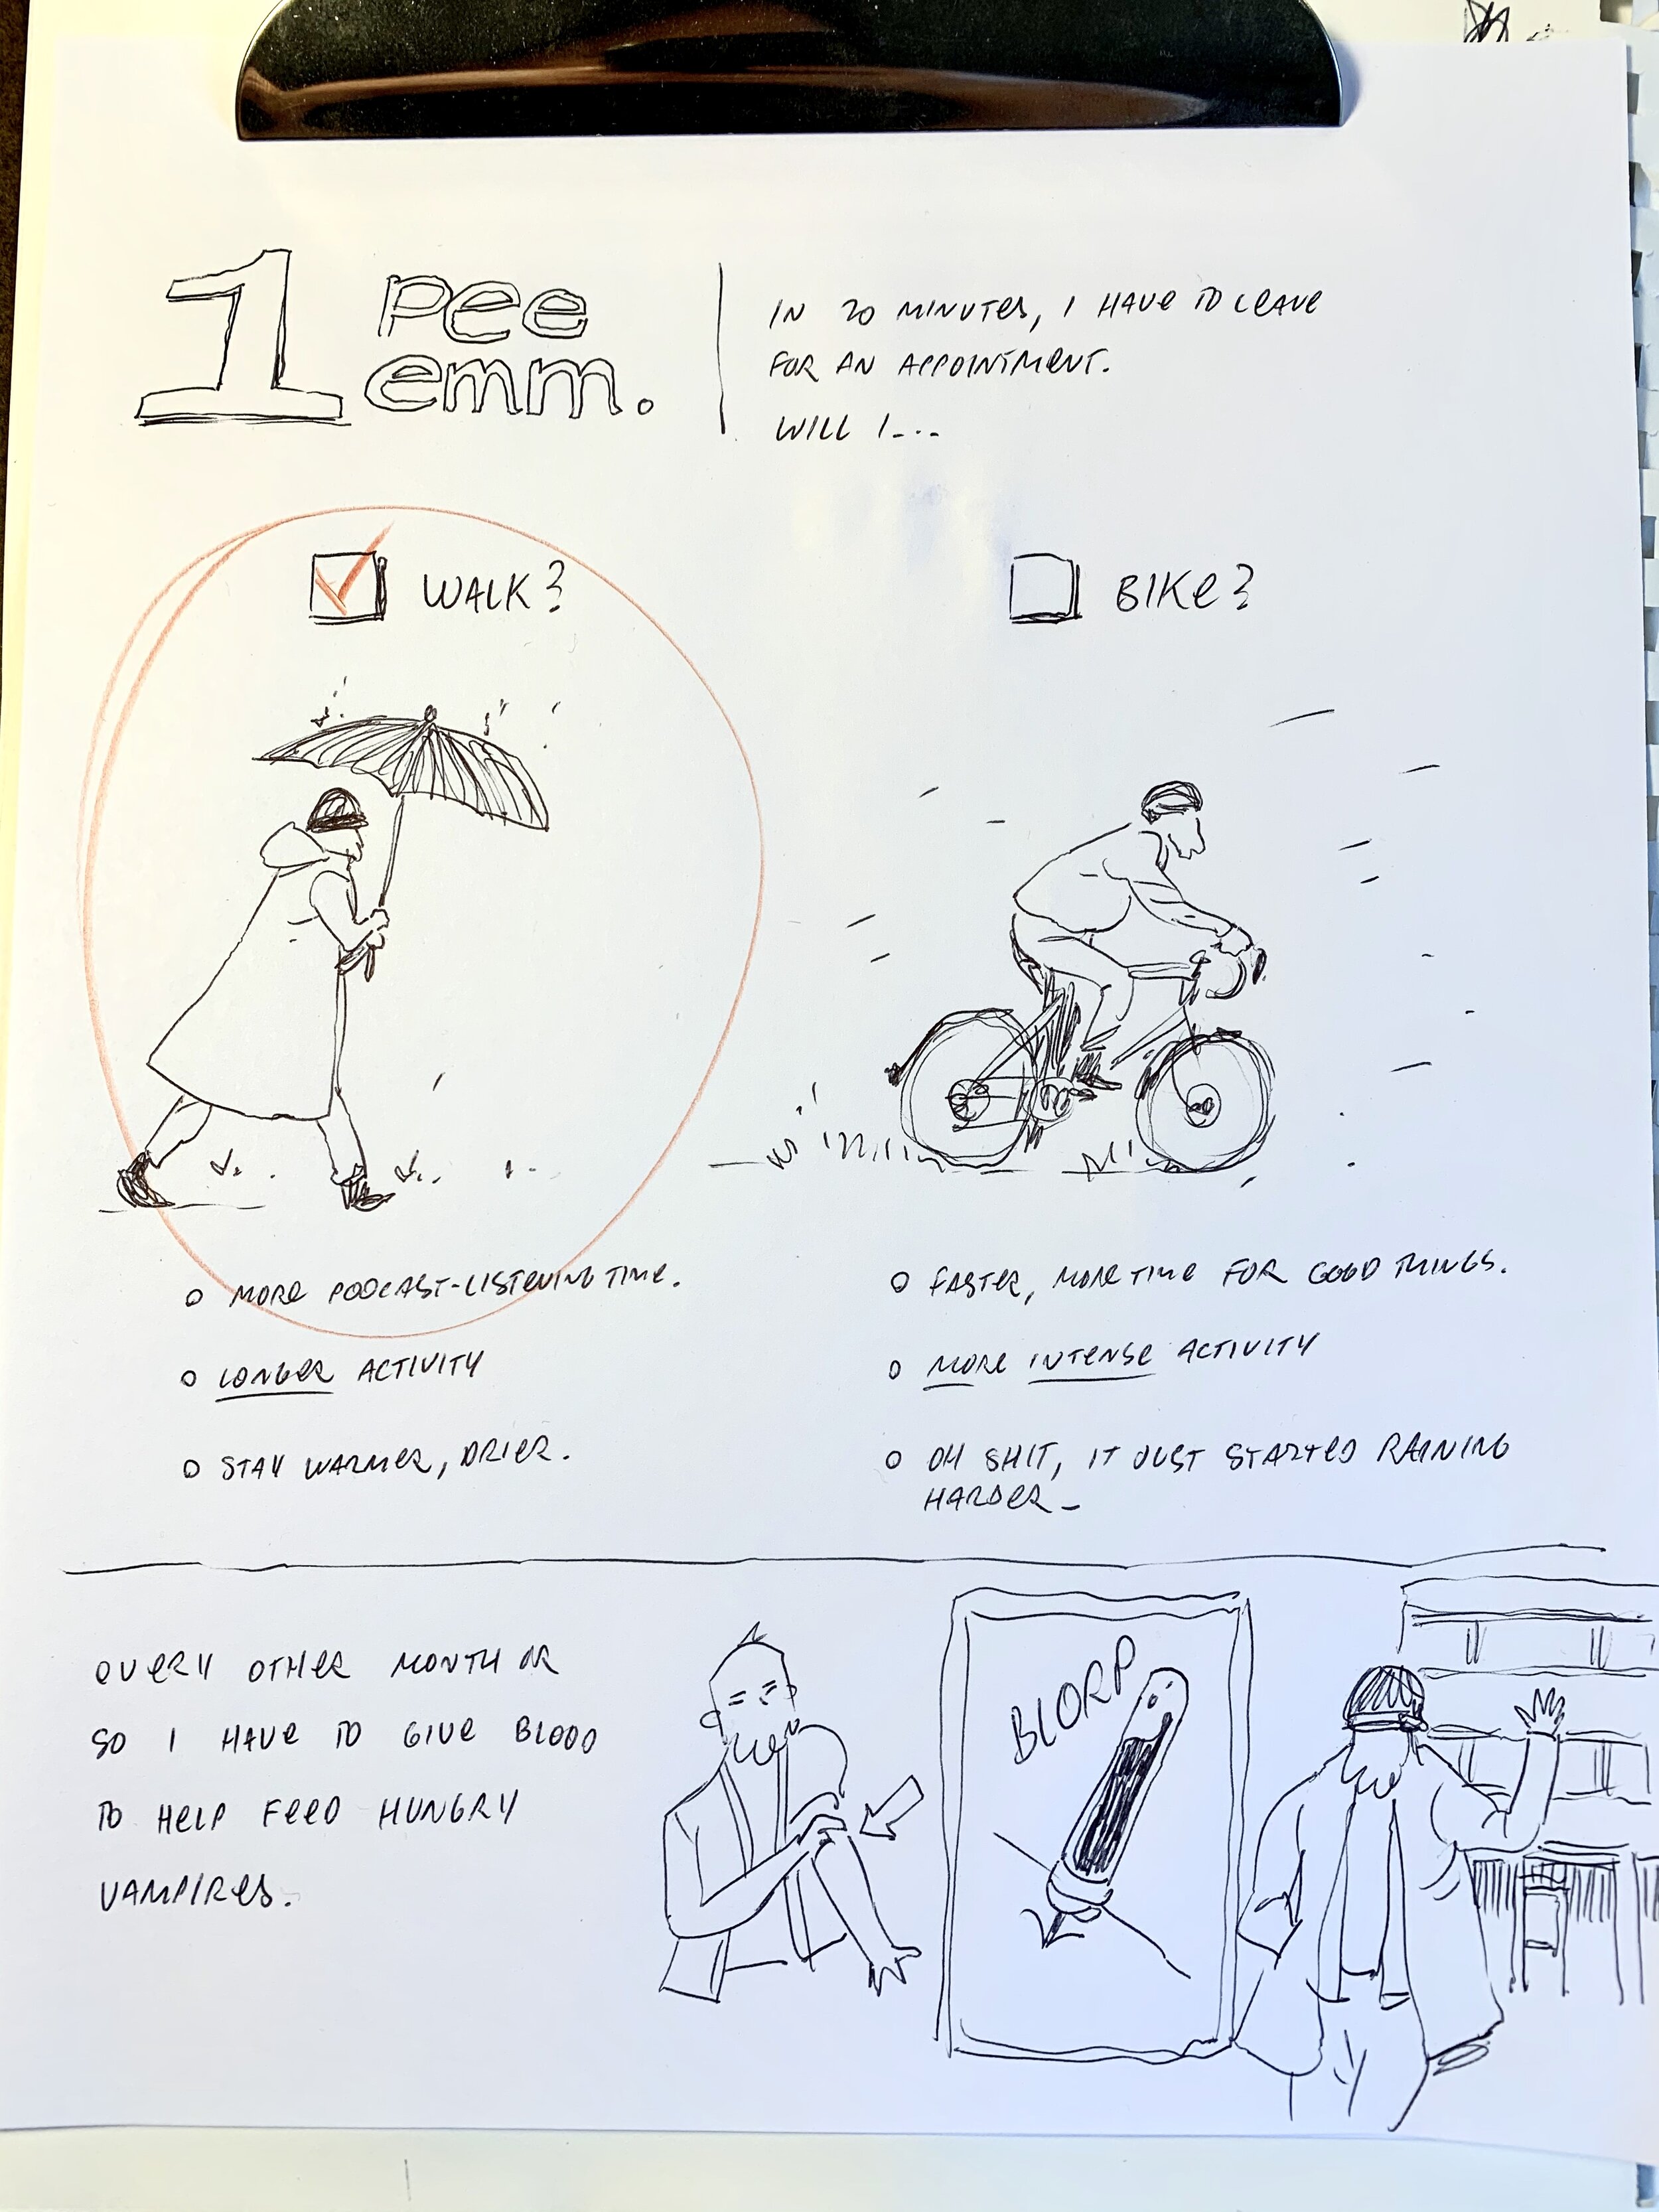 1 pee
emm.
IN 20 MINUTES, I HAVE TO LEAVE
FOR AN APPOINTMENT.
WILL I...
WALK?
BIKE?
MORE PODCAST-LISTENING TIME.
LONGER ACTIVITY
STAY WARMER, DRIER.
FASTER, MORE TIME FOR GOOD THINGS.
MORE INTENSE ACTIVITY
OH SHIT, IT JUST STARTED RAINING
HARDER_
EVERY OTHER MONTH OR
SO I HAVE TO GIVE BLOOD
TO HELP FEED HUNGRY
VAMPIRES.
BLORP